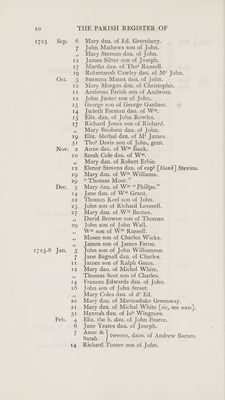 10 THE PARISH REGISTER OF
1725 Sep. 6 Mary dau. of Ed. Greenbury.
7 John Mathews son of John.
„ Mary Stevens dau. of John.
12 James Silver son of Joseph.
17 Martha dau. of Thos Russell.
29 Robertanah Cawley dau. of Mr John.
Oct. 5 Susanna Matox dau. of John.
10 Mary Morgan dau. of Christophir.
11 Ambross Parish son of Ambross.
12 John Juster son of John.
13 George son of George Gardner.
14 Judeth Freman dau. of Wm.
15 Eliz. dau. of John Rowles.
17 Richard Jones son of Richard.
„ Mary Benham dau. of John.
29 Eliz. Methal dau. of Mr James.
31 Thos Davis son of John, gent.
Nov. 2 Anne dau. of Wm Bank.
10 Sarah Cole dau. of Wm.
„ Mary dau. of Robert Erbie.
12 Elenor Stevens dau. of capt [blank] Stevins.
19 Mary dau. of Wm Williams.
29 "Thomas Moor."
Dec. 3 Mary dau. of Wm "Phillps."
14 Jane dau. of Wm Grant.
22 Thomas Keel son of John.
25 John son of Richard Loverell.
27 Mary dau. of Wm Barnes.
„ David Browne son of Thomas.
29 John son of John Wall.
„ Wm son of Wm Russell.
„ Moses son of Charles Wicks.
„ James son of James Farne.
1725-6 Jan. 3 John son of John Williamson.
7 Jane Bagnall dau. of Charles.
11 James son of Ralph Gates.
12 Mary dau. of Michel White.
„ Thomas Scot son of Charles.
14 Frances Edwards dau. of John.
16 John son of John Street.
„ Mary Coles dau. of dr Ed.
20 Mary dau. of Marmaduke Greenway.
21 Mary dau. of Michel White [sic, see ante].
31 Hannah dau. of Jos Wingrove.
Feb. 4 Eliz. the b. dau. of John Pearce.
6 Jane Yeates dau. of Joseph.
7 Anne & Sarah } tweens, daus. of Andrew Barnes.
14 Richard Turner son of John.